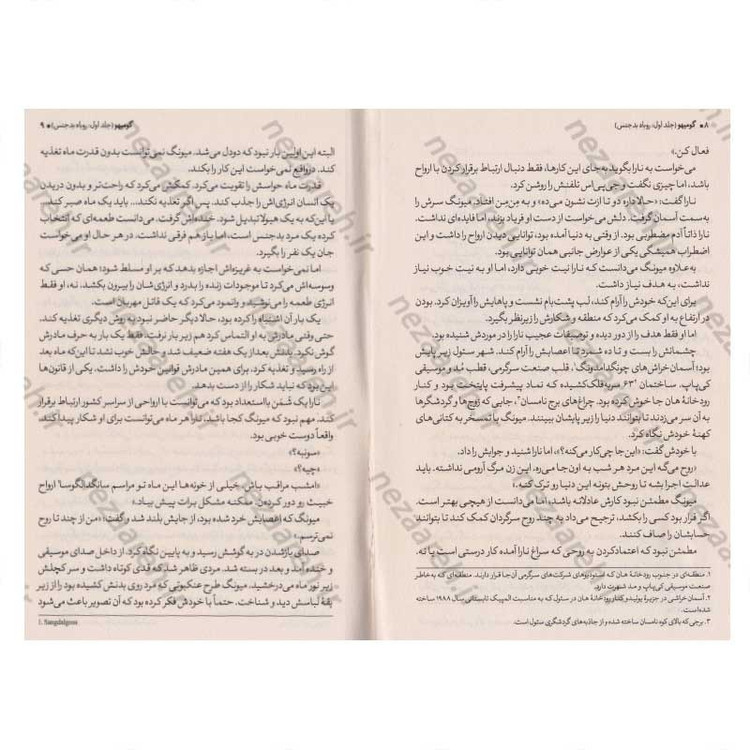 ۸ ● گومیهو (جلد اول: روباه بدجنس)
فعال کن.»
می‌خواست به نارا بگوید به‌جای این کارها، فقط دنبال ارتباط برقرار کردن با ارواح
باشد، اما چیزی نگفت و جی‌پی‌اس تلفنش را روشن کرد.
نارا گفت: «حالا داره دو تا ازت نشون می‌ده» و به مِن‌مِن افتاد. میونگ سرش را
به سمت آسمان گرفت. دلش می‌خواست از دست او فریاد بزند، اما فایده‌ای نداشت.
نارا ذاتاً آدم مضطربی بود. از وقتی به دنیا آمده بود، توانایی دیدن ارواح را داشت و این
اضطراب همیشگی یکی از عوارض جانبی همان توانایی بود.
به‌علاوه میونگ می‌دانست که نارا نیت خوبی دارد، اما او به نیت خوب نیاز
نداشت، به هدف نیاز داشت.
برای این‌که خودش را آرام کند، لب پشت‌بام نشست و پاهایش را آویزان کرد. بودن
در ارتفاع به او کمک می‌کرد که منطقه و شکارش را زیرنظر بگیرد.
اما او فقط هدف را از دور دیده و توصیفات عجیب نارا را در موردش شنیده بود.
چشمانش را بست و تا ده شمرد تا اعصابش را آرام کند. شهر سئول زیر پایش
بود؛ آسمان‌خراش‌های چونگدامدونگ۱، قلب صنعت سرگرمی، قطب مُد و موسیقی
کی‌پاپ. ساختمان ۶۳۲ سربه‌فلک‌کشیده که نماد پیشرفت پایتخت بود و کنار
رودخانهٔ هان جا خوش کرده بود. چراغ‌های برج نامسان۳، جایی که زوج‌ها و گردشگرها
به آن سر می‌زدند تا بتوانند دنیا را زیر پایشان ببینند. میونگ با تمسخر به کتانی‌های
کهنهٔ خودش نگاه کرد.
با خودش گفت: «این‌جا چی‌کار می‌کنه؟»، اما نارا شنید و جوابش را داد.
«روح می‌گه این مرد هر شب به اون‌جا می‌ره. این زن مرگ آرومی نداشته. باید
عدالت اجرا بشه تا روحش بتونه این دنیا رو ترک کنه.»
میونگ مطمئن نبود کارش عادلانه باشد، اما می‌دانست از هیچی بهتر است.
اگر قرار بود کسی را بکشد، ترجیح می‌داد به چند روح سرگردان کمک کند تا بتوانند
حسابشان را صاف کنند.
مطمئن نبود که اعتماد کردن به روحی که سراغ نارا آمده کار درستی است یا نه.
۱. منطقه‌ای در جنوب رودخانهٔ هان که استودیوهای شرکت‌های سرگرمی آن‌جا قرار دارند. منطقه‌ای که به‌خاطر
صنعت موسیقی کی‌پاپ و مد شهرت دارد.
۲. آسمان‌خراشی در جزیرهٔ یوئیدو و کنار رودخانهٔ هان در سئول که به مناسبت المپیک تابستانی سال ۱۹۸۸ ساخته
شده است.
۳. برجی که بالای کوه نامسان ساخته شده و از جاذبه‌های گردشگری سئول است.
گومیهو (جلد اول: روباه بدجنس) ● ۹
البته این اولین بار نبود که دودل می‌شد. میونگ نمی‌توانست بدون قدرت ماه تغذیه
کند. در واقع نمی‌خواست این کار را بکند.
قدرت ماه حواسش را تقویت می‌کرد. کمکش می‌کرد که راحت‌تر و بدون دریدن
یک انسان انرژی‌اش را جذب کند. پس اگر تغذیه نکند... باید یک ماه صبر کند
یا این‌که به یک هیولا تبدیل شود. خنده‌اش گرفت. می‌دانست طعمه‌ای که انتخاب
کرده یک مرد بدجنس است، اما باز هم فرقی نداشت. در هر حال او می‌خواست
جان یک نفر را بگیرد.
اما نمی‌خواست به غریزه‌اش اجازه بدهد که بر او مسلط شود؛ همان حسی که
وسوسه‌اش می‌کرد تا موجودات زنده را بدرد و انرژی‌شان را بیرون بکشد. نه، او فقط
انرژی طعمه را می‌نوشید و وانمود می‌کرد که یک قاتل مهربان است.
یک بار آن اشتباه را کرده بود، حالا دیگر حاضر نبود به روش دیگری تغذیه کند.
حتی وقتی مادرش به او التماس کرد هم زیر بار نرفت. فقط یک بار به حرف مادرش
گوش نکرد. بدنش بعد از یک هفته ضعیف شد و حالش خوب نشد تا این‌که ماه بعد
از راه رسید و تغذیه کرد. برای همین مادرش قوانین خودش را داشت. یکی از قانون‌ها
این بود که نباید شکار را از دست بدهد.
نارا یک شَمَن بااستعداد بود که می‌توانست با ارواحی از سراسر کشور ارتباط برقرار
کند. مهم نبود که میونگ کجا باشد، نارا هر ماه می‌توانست برای او شکار پیدا کند.
واقعاً دوست خوبی بود.
«سونبه؟»
«چیه؟»
«امشب مراقب باش. خیلی از خونه‌ها این ماه تو مراسم سانگدالگوسا۱ ارواح
خبیث رو دور کردن. ممکنه مشکل برات پیش بیاد.»
میونگ که اعصابش خرد شده بود، از جایش بلند شد و گفت: «من از چند تا روح
نمی‌ترسم.»
صدای باز شدن در به گوشش رسید و به پایین نگاه کرد. از داخل صدای موسیقی
و خنده آمد و بعد در بسته شد. مردی ظاهر شد که قدی کوتاه داشت و سر کچلش
زیر نور ماه می‌درخشید. میونگ طرح عنکبوتی که مرد روی بدنش کشیده بود را از زیر
یقهٔ لباسش دید و شناخت. حتماً با خودش فکر کرده بود که آن تصویر باعث می‌شود
1. Sangdalgosa
nezaareh.ir